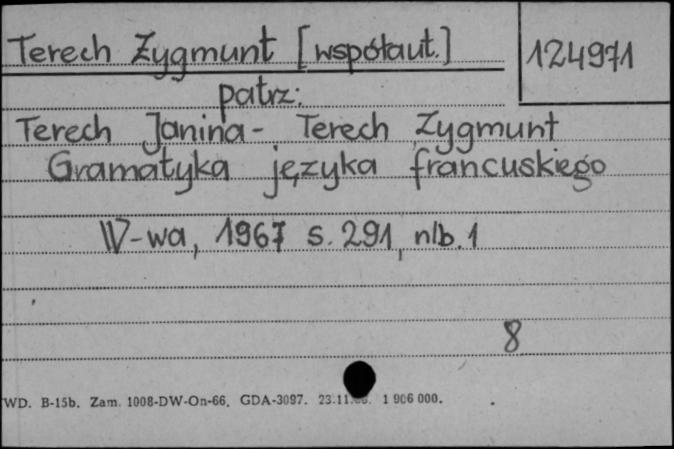 Terech Zygmunt [współaut.]
124971
patrz:
Terech Janina - Terech Zygmunt
Gramatyka języka francuskiego
W-wa, 1967 s. 291, nlb. 1
8
WD. B-15b. Zam. 1008-DW-On-66. GDA-3097. 23.11. 1 906 000.